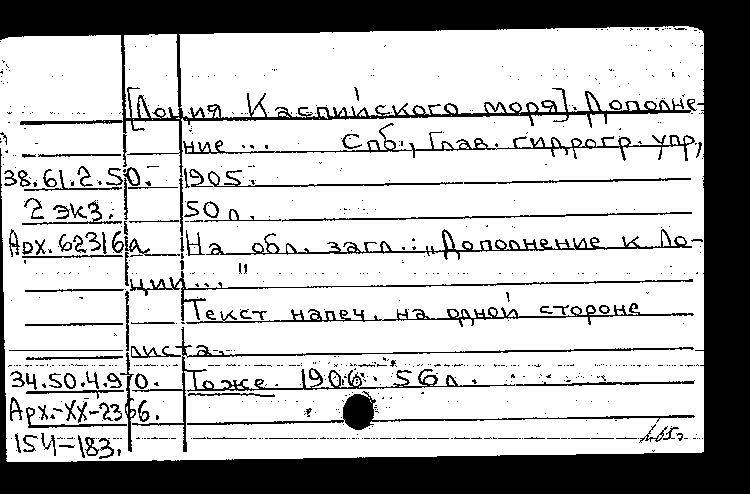 [Лоция Каспийского моря]. Дополне-
ние ... Спб., Глав. гидрогр. упр,
38.61.2.50. 1905.
2 экз. 50 л.
Арх. 62316а На обл. загл.: „Дополнение к Ло-
ции ..."
Текст напеч. на одной стороне
листа.
34.50.4.970. То же. 1906. 56 л.
Арх.-XX-2366.
154-183.